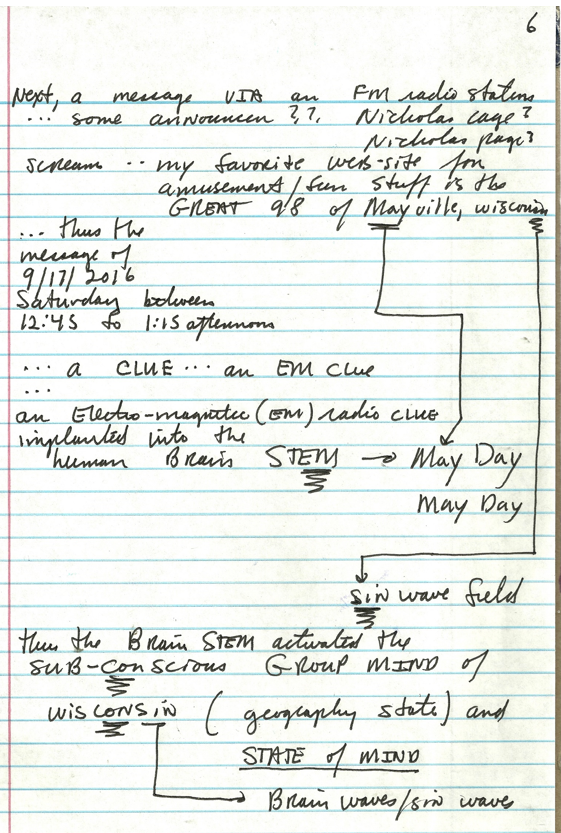 6
Next, a message VIA an FM radio station
... some announcer ??, Nicholas Cage?
Nicholas Page?
scream .. my favorite web-site for
amusement/fun stuff is the
GREAT 98 of Mayville, wisconsin
... thus the
message of
9/17/2016
Saturday between
12:45 to 1:15 afternoon
... a CLUE ... an EM clue
...
an Electro-magnetic (EM) radio CLUE
implanted into the
human Brain STEM → May Day
May Day
sin wave field
thus the Brain STEM activated the
SUB-conscious GROUP MIND of
WISCONSIN ( geography state ) and
STATE of MIND
Brain waves/sin waves